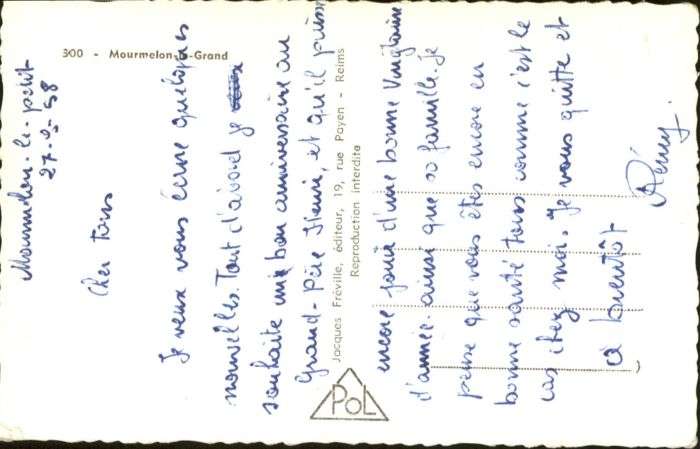 300 - Mourmelon-le-Grand
Mourmelon-le-petit
27-9-58
Cher tous
Je veux vous écrire quelques
nouvelles. Tout d'abord je
souhaite une bon anniversaire au
Grand-Père Henri, et qu'il puisse
encore jouir d'une bonne vingtaine
d'année. ainsi que sa famille. Je
pense que vous êtes encore en
bonne santé tous comme c'est le
cas chez moi. Je vous quitte et
à bientôt
Rémy.
Jacques Fréville, éditeur, 19, rue Payen - Reims
Reproduction interdite
POL